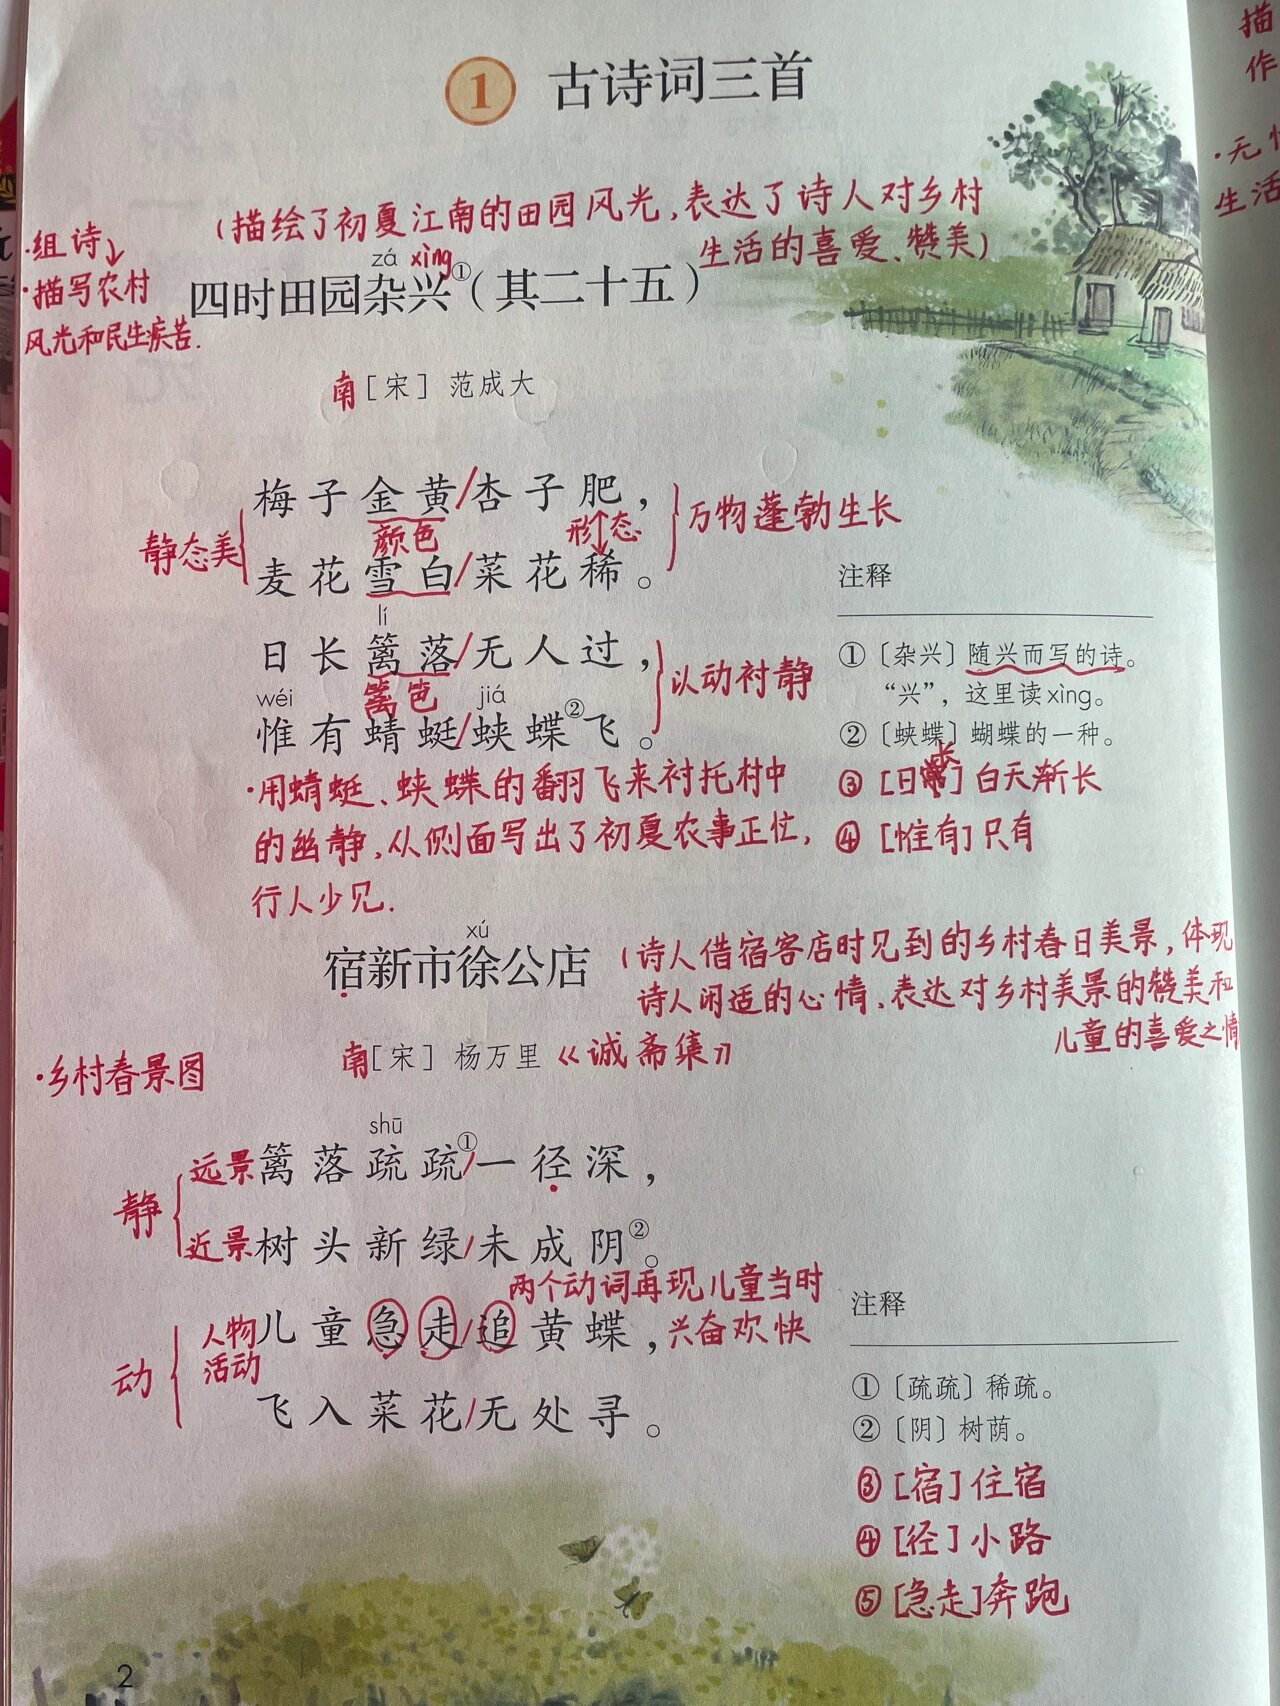 1 古诗词三首
(描绘了初夏江南的田园风光,表达了诗人对乡村
生活的喜爱、赞美)
·组诗↓
·描写农村
风光和民生疾苦.
zá xìng
四时田园杂兴①(其二十五)
南[宋] 范成大
静态美
梅子金黄/杏子肥,
颜色 形态
麦花雪白/菜花稀。
万物蓬勃生长
lí
日长篱落/无人过,
篱笆
wéi jiá
惟有蜻蜓/蛱蝶②飞。
以动衬静
·用蜻蜓、蛱蝶的翻飞来衬托村中
的幽静,从侧面写出了初夏农事正忙,
行人少见.
注释
①〔杂兴〕随兴而写的诗。
“兴”,这里读xìng。
②〔蛱蝶〕蝴蝶的一种。
③[日长]白天渐长
④[惟有]只有
xú
宿新市徐公店
(诗人借宿客店时见到的乡村春日美景,体现
诗人闲适的心情、表达对乡村美景的赞美和
儿童的喜爱之情
南[宋] 杨万里《诚斋集》
·乡村春景图
shū
静
远景篱落疏疏①/一径深,
近景树头新绿/未成阴②。
两个动词再现儿童当时
兴奋欢快
动
人物
活动
儿童急走/追黄蝶,
飞入菜花/无处寻。
注释
①〔疏疏〕稀疏。
②〔阴〕树荫。
③[宿]住宿
④[径]小路
⑤[急走]奔跑
2
描
作
·无
生活